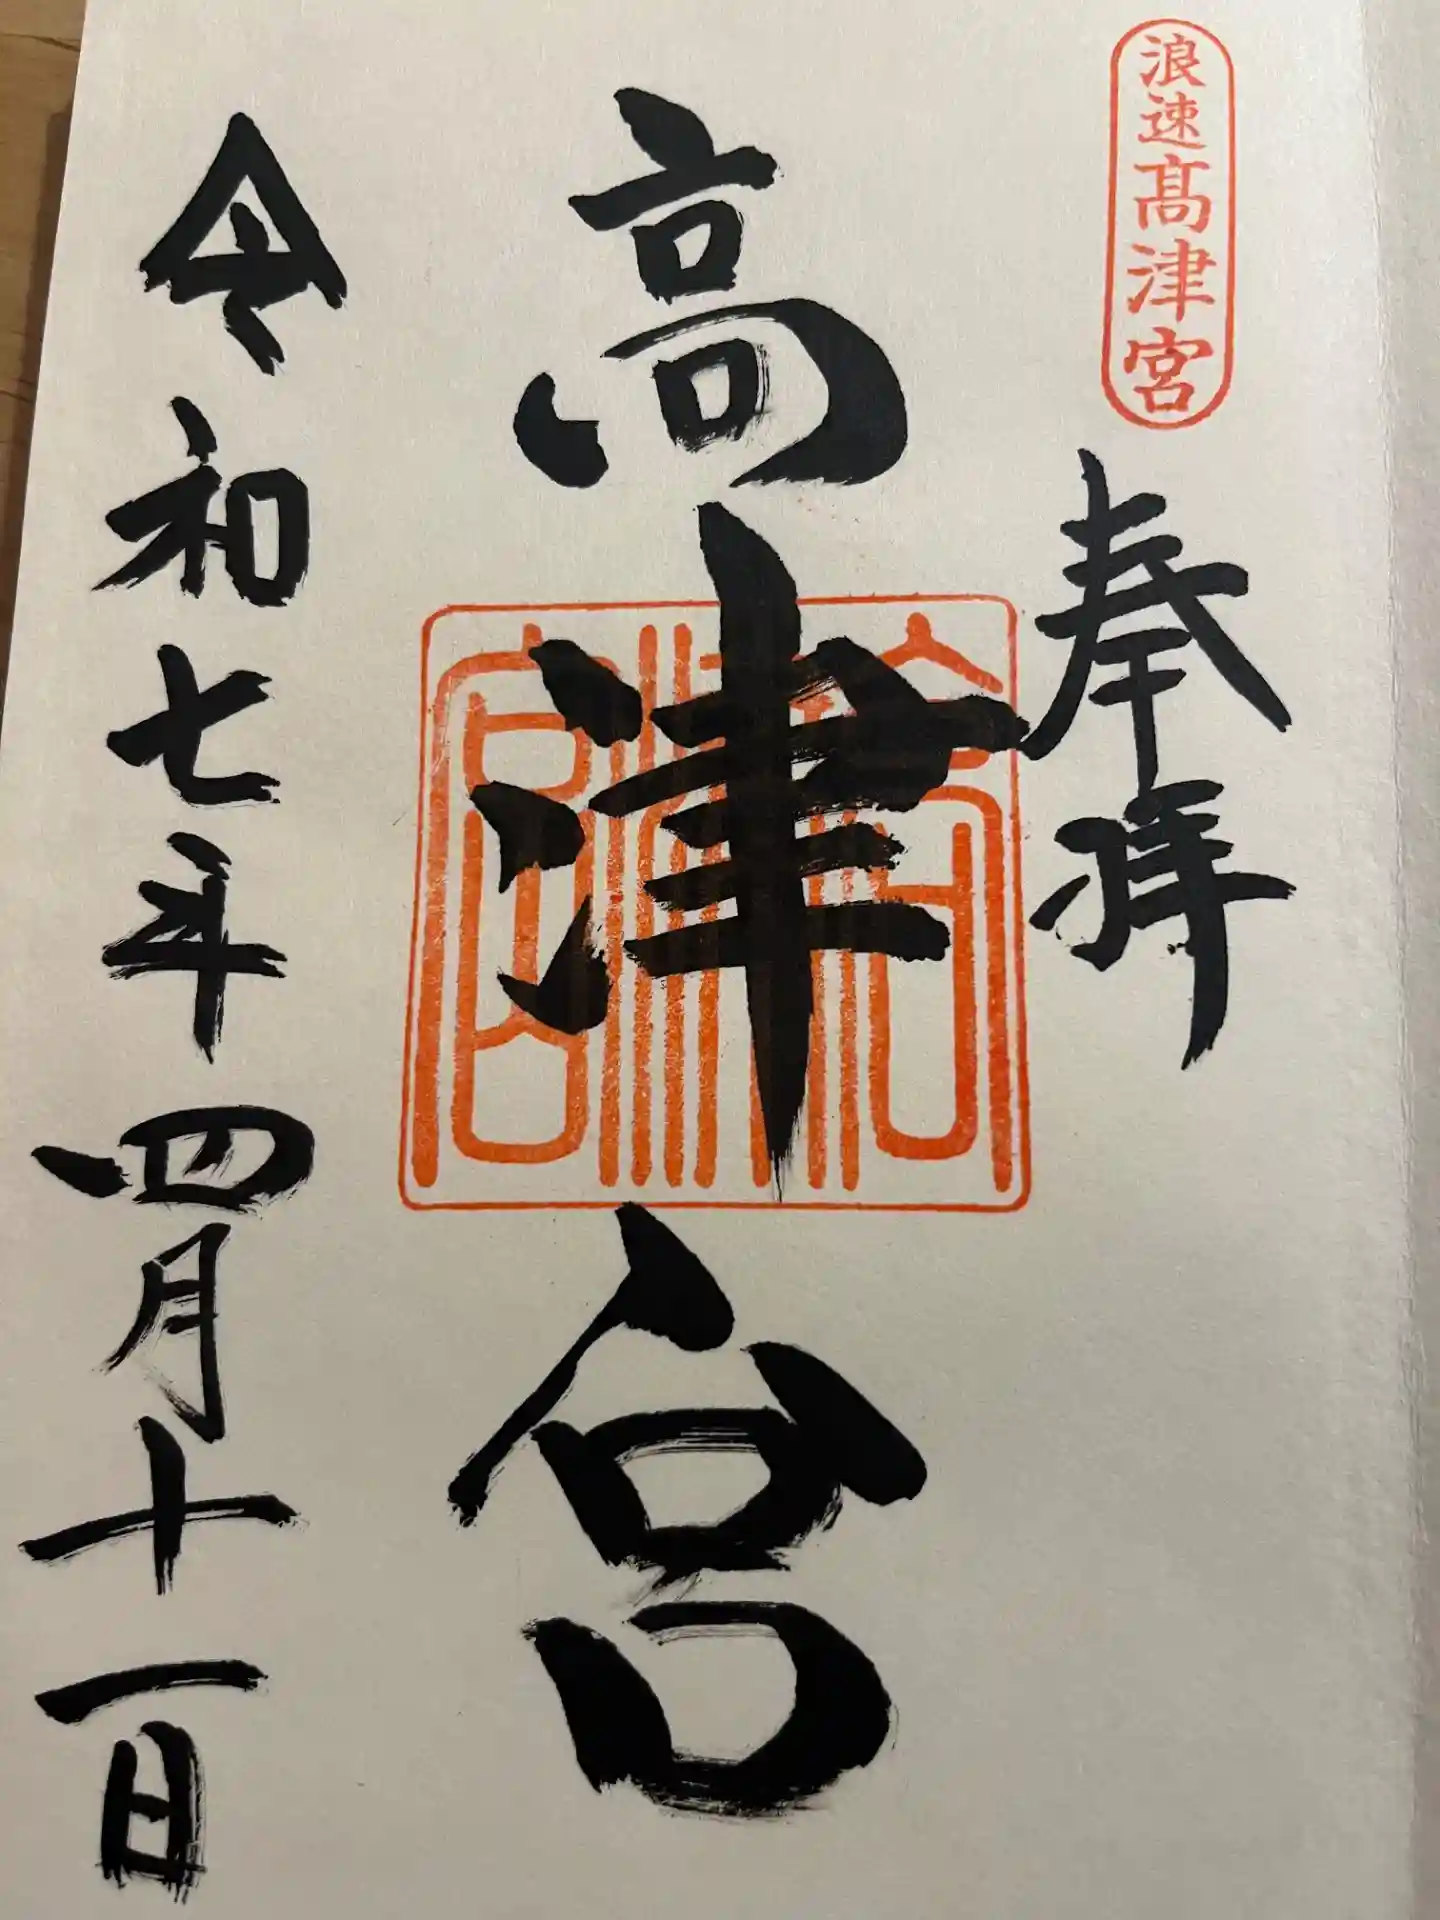 浪速髙津宮
奉拝
高津宮
高津宮
令和七年四月十一日